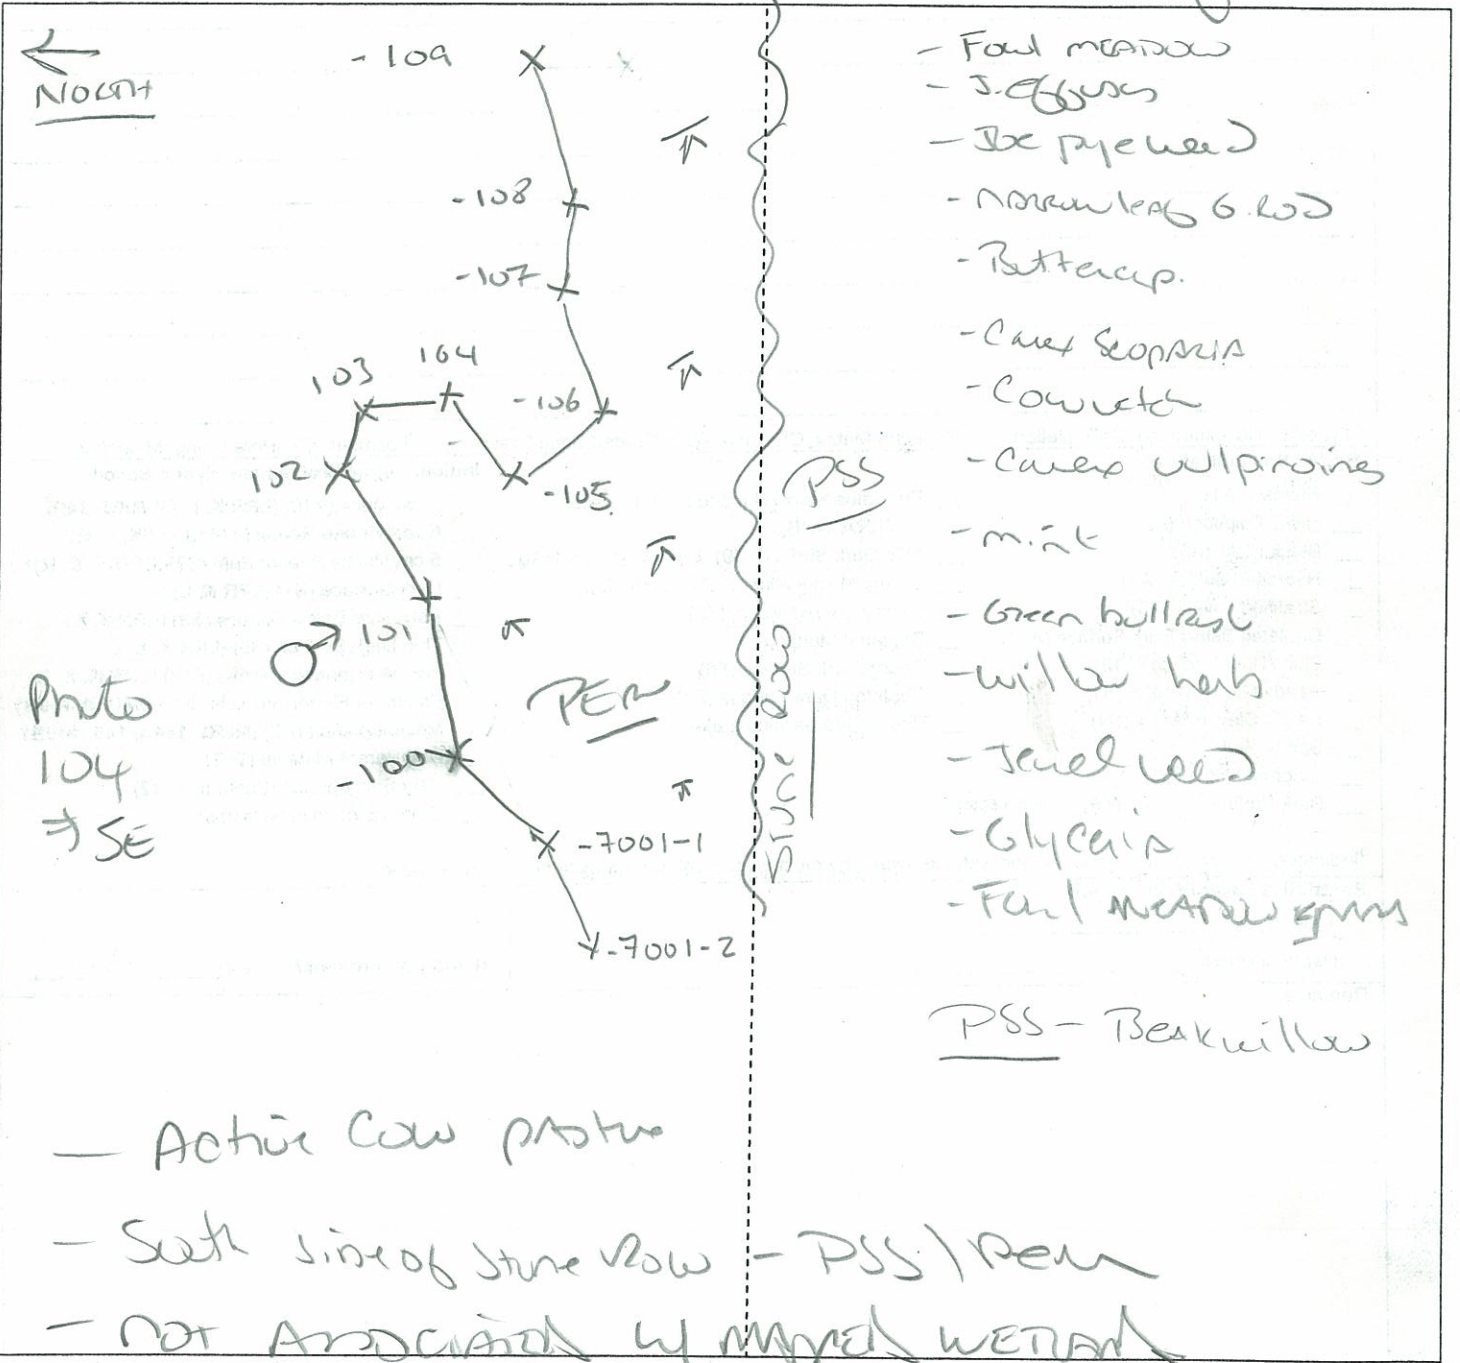 NORTH
-109
-108
-107
104
103
-106
102
-105
101
PEM
Photo
104
→ SE
-100
-7001-1
-7001-2
PSS
Stone Row
- Fowl MEADOW
- J. effusus
- Joe pye weed
- NARROW leaf G. ROD
- Buttercup.
- Carex ScopARIA
- Cow vetch
- Carex vulpinoidea
- mint
- Green bullrush
- willow herb
- Jewel weed
- Glyceria
- Fowl MEADOW grass
PSS - Beak willow
— Active Cow pasture
- South side of Stone Row - PSS / PEM
- NOT ASSOCIATED w/ MAPPED WETLAND